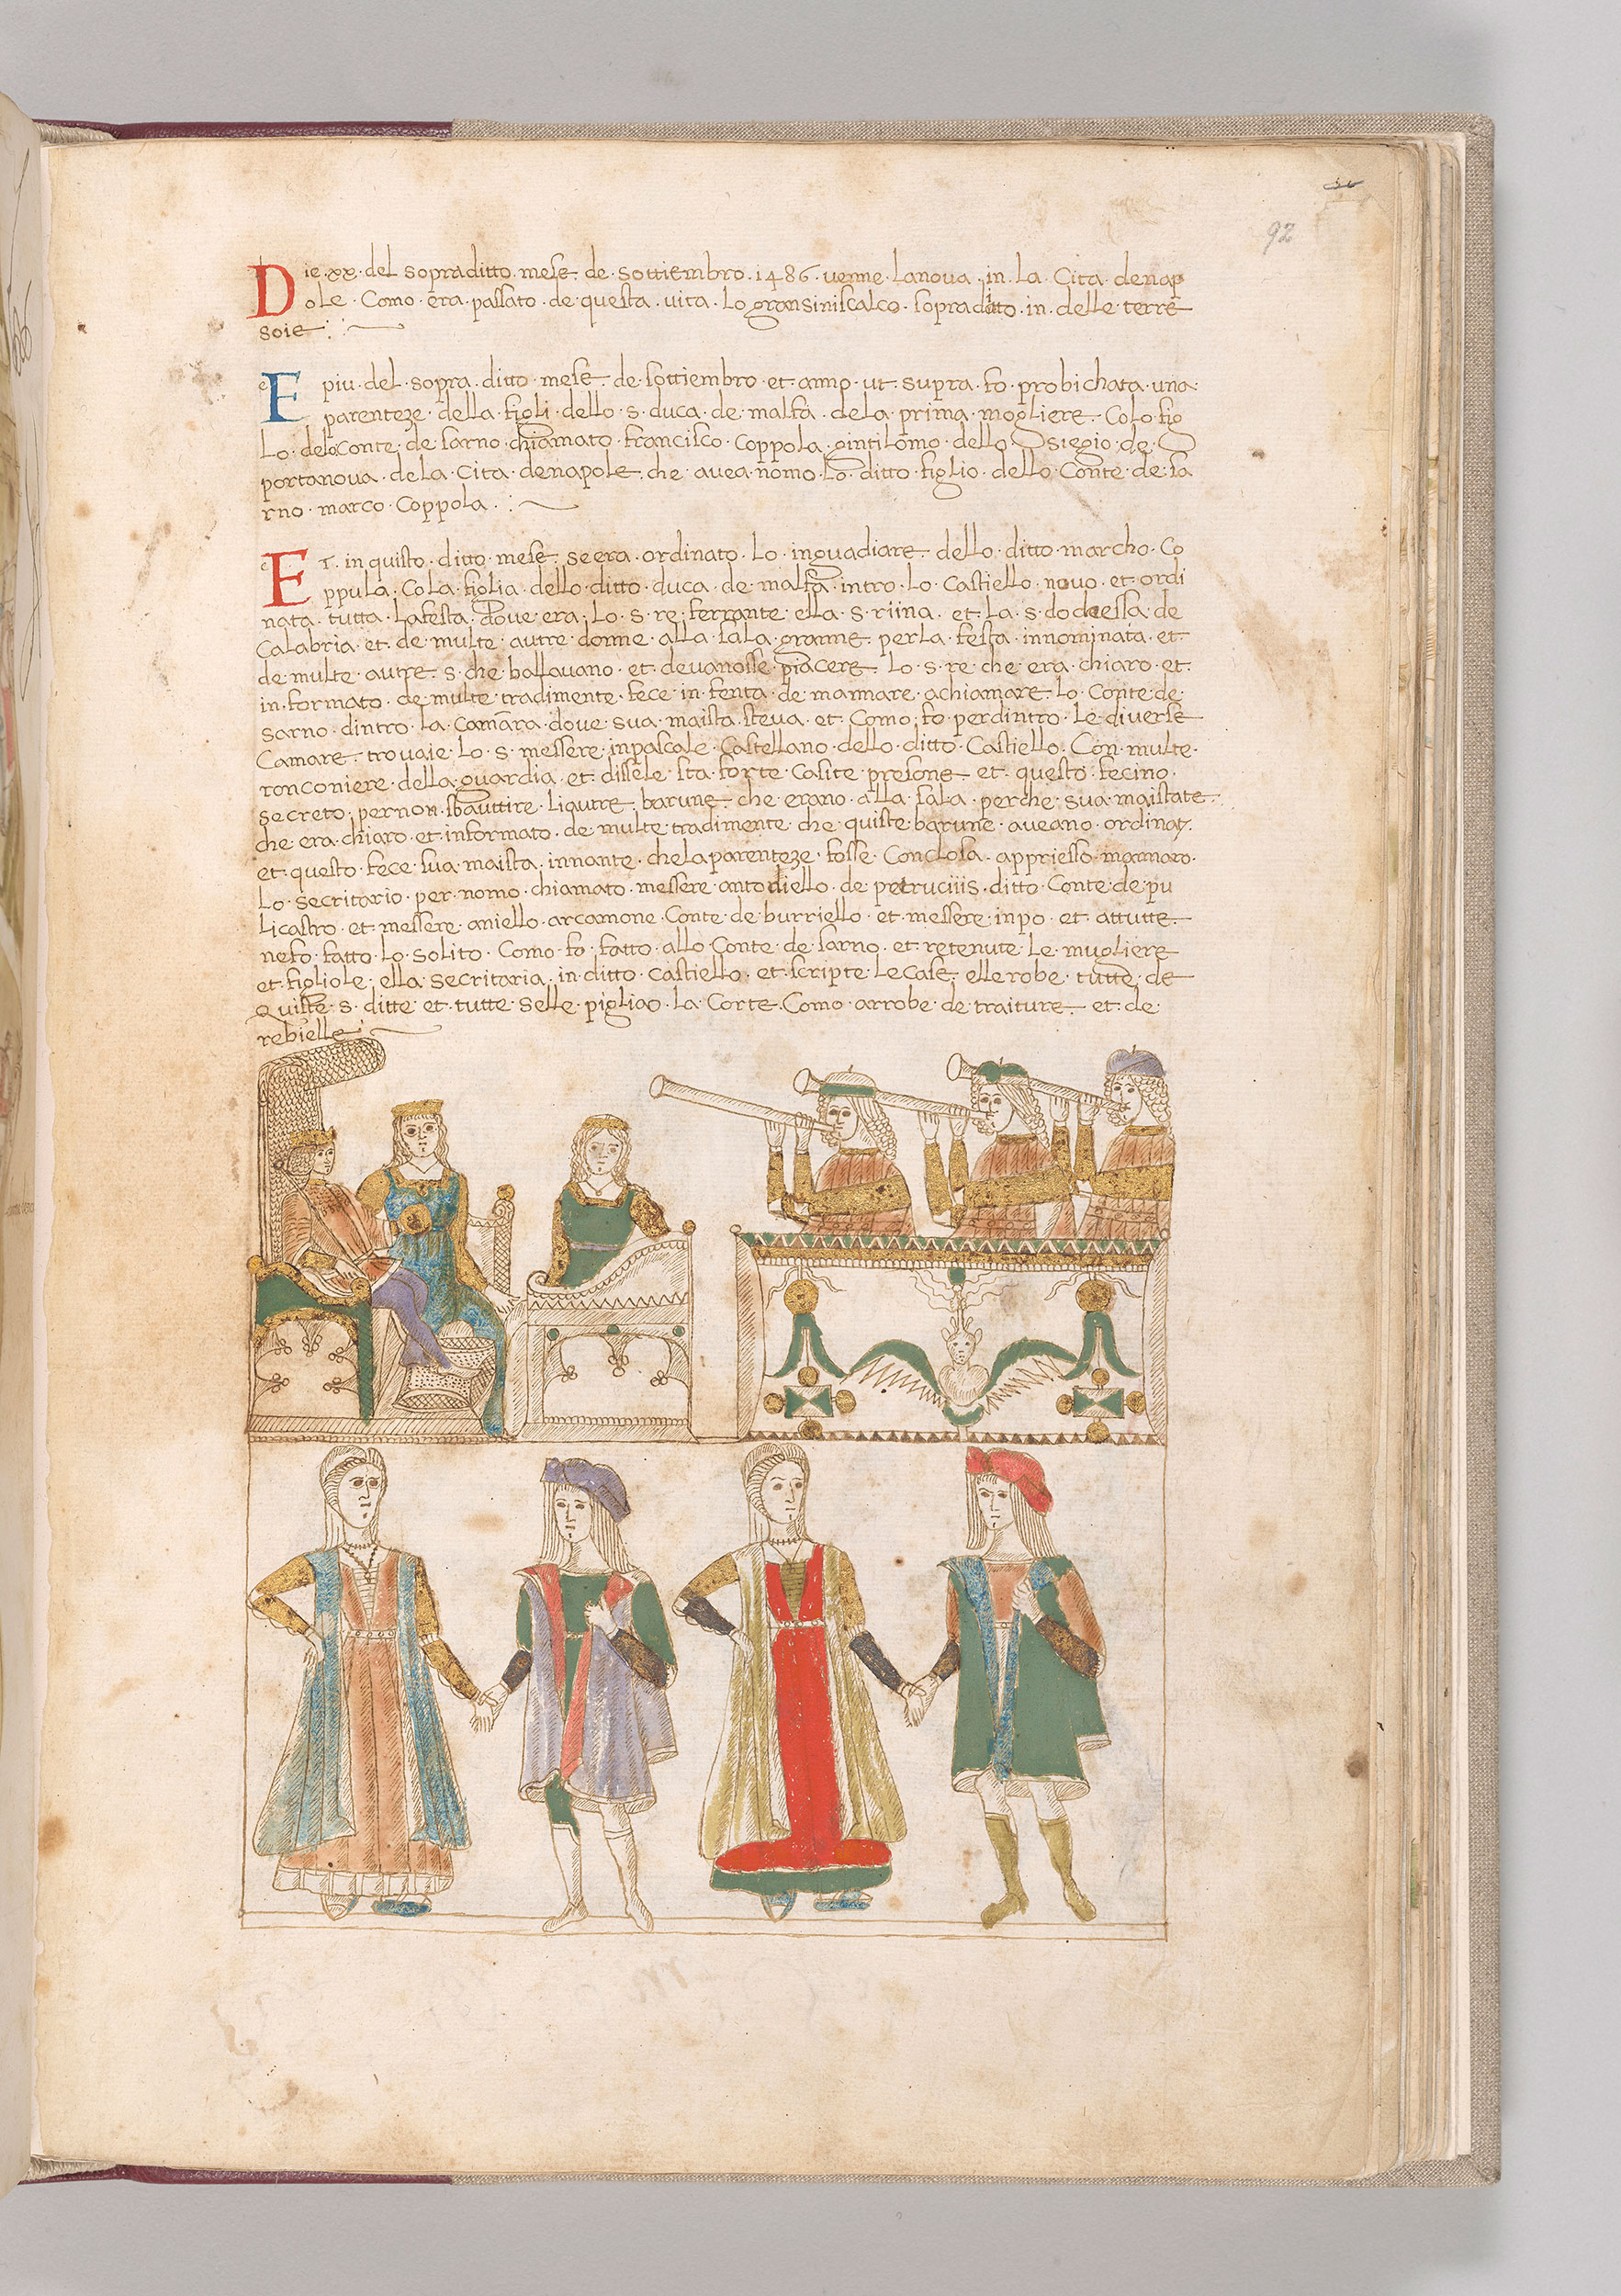 92
Die · xx · del sopraditto · mese · de · sottiembro · 1486 · venne · la nova · in · la · Cita · denap
ole · Como · era · passato · de · questa · vita · lo gransiniscalco · sopraditto · in · delle terre
soie
E piu · del · sopra · ditto · mese · de · sottiembro · et · anno · ut · supra · fo · probichata · una ·
parenteze · della · figli · dello · s · duca · de · malfa · de la · prima · mogliere · Colo fig
Lo · delo Conte · de sarno · chiamato · francisco · Coppola · gintilomo · dello · siegio · de ·
portanova · de la · Cita · denapole · che · avea · nomo · lo · ditto · figlio · dello · Conte · de · sa
rno · marco · Coppola ·
ET · in quisto · ditto · mese · se era · ordinato · lo · inguadiare · dello · ditto · marcho · Co
ppula · Co la · figlia · dello · ditto · duca · de · malfa · intro · lo · Castiello · novo · et · ordi
nata · tutta · la festa · Dove era · lo · s · re · ferrante · ella · s · riina · et · la · s · dodaessa · de
Calabria · et · de · multe · autre · donne · alla · sala · granne · per la · festa · innominata · et ·
de multe · autre · s · che ballavano · et · devanosse · piacere · lo · s · re · che · era · chiaro · et ·
in formato · de multe · tradimente · fece · in fenta · de mannare · achiamare · lo · Conte de ·
sarno · dintro · la · Camara · dove · sua · maista · steva · et · Como · fo · per dintro · le diverse
Camare · trovaie · lo · s · messere · inpascale · Castellano · dello · ditto · Castiello · Con · multe ·
ronconiere · della · guardia · et · dissele · sta · forte · Casite · presone · et · questo · fecino ·
secreto · pernon · sbauttire · li autre · barune · che erano · alla · sala · perche · sua · maistate ·
che era · chiaro · et · informato · de · multe · tradimente · che · quiste · barune · aveano · ordinat
et · questo · fece · sua · maista · innante · che la parenteze · fosse · Conclosa · appriesso · mannaro ·
Lo · secritario · per · nomo · chiamato · messere · antodiello · de petruciiis · ditto · Conte · de · pu
Licastro · et · messere · aniello · arcamone · Conte · de burriello · et · messere · inpo · et · attutte ·
ne fo · fatto · lo · solito · Como · fo · fatto · allo · Conte · de sarno · et · retenute · le · mugliere
et · figliole · ella · secritaria · in · ditto · Castiello · et · scripte · le Case · elle robe · tutte · de
Quiste · s · ditte · et · tutte · selle · pigliao · la · Corte · Como · arrobe · de traiture · et · de ·
rebielle